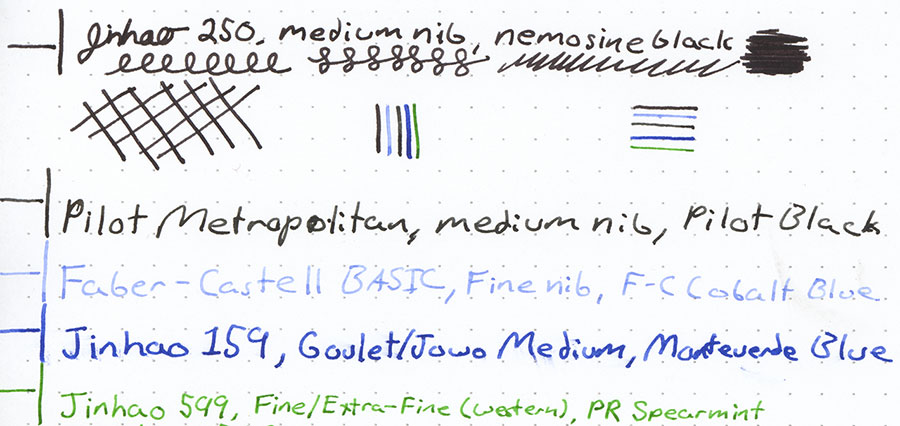 Jinhao 250, medium nib, nemosine black
Pilot Metropolitan, medium nib, Pilot Black
Faber-Castell BASIC, Fine nib, F-C Cobalt Blue
Jinhao 159, Goulet/Jowo Medium, Monteverde Blue
Jinhao 599, Fine/Extra-Fine (western), PR Spearmint